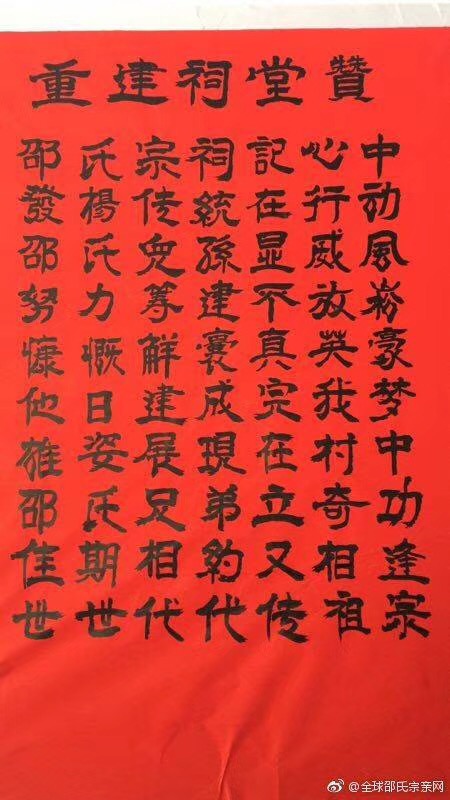 重建祠堂贊
邵氏宗祠記心中
發楊传統在行动
邵氏孫显威風
努力筹建不放崧
慷慨解襄真英豪
他日建成完我梦
雄姿展現在村中
邵氏兄弟立奇功
佳期相約又相逢
世世代代传祖宗
@全球邵氏宗亲网